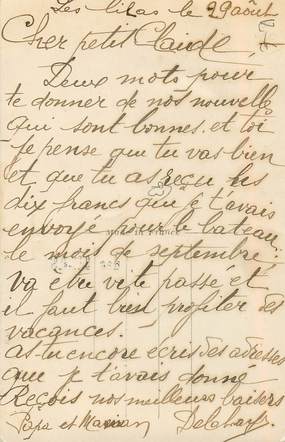 Les lilas le 29 août
Cher petit Claude,
Deux mots pour
te donner de nos nouvelles
qui sont bonnes. et toi
je pense que tu vas bien
et que tu as reçu les
dix francs que je t'avais
envoyé pour le bateau.
le mois de septembre
va être vite passé et
il faut bien profiter des
vacances.
as-tu encore écris des adresses
que je t'avais donné
Reçois nos meilleurs baisers
Papa et Maman